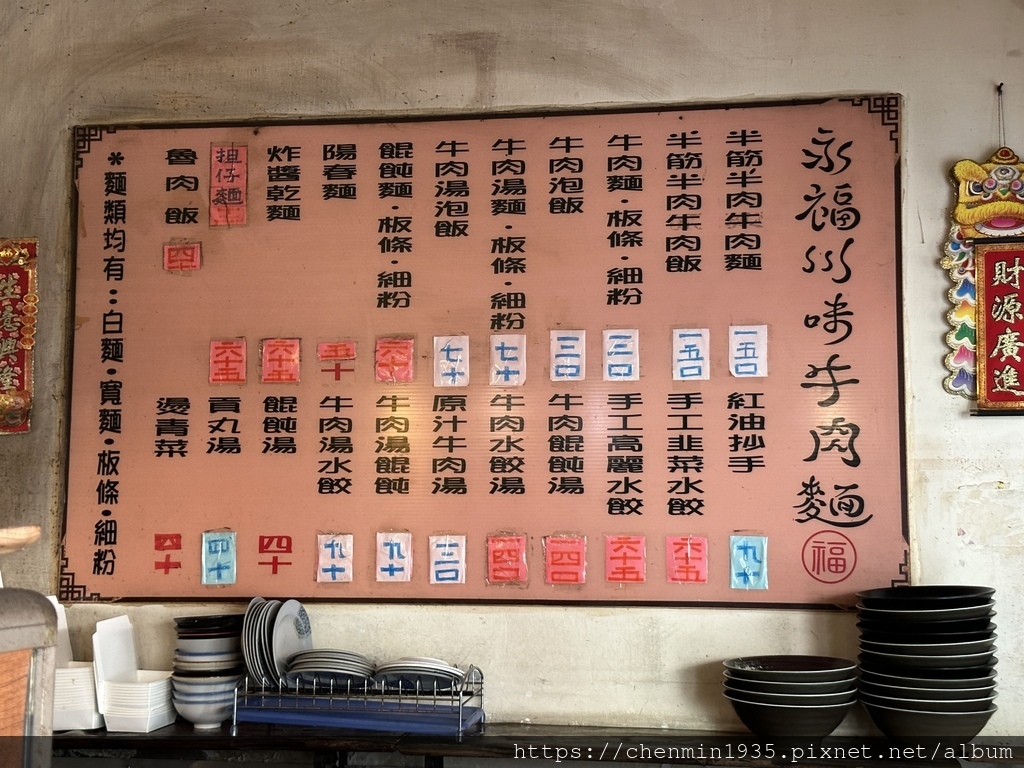 永福川味牛肉麵
福
半筋半肉牛肉麵 一五〇
半筋半肉牛肉飯 一五〇
牛肉麵·板條·細粉 一二〇
牛肉泡飯 一二〇
牛肉湯麵·板條·細粉 七十
牛肉湯泡飯 七十
餛飩麵·板條·細粉
陽春麵 五十
炸醬乾麵 六十五
担仔麵 六十五
魯肉飯 四十
紅油抄手 九十
手工韭菜水餃 六十五
手工高麗水餃 六十五
牛肉餛飩湯 一四〇
牛肉水餃湯 一四〇
原汁牛肉湯 一二〇
牛肉湯餛飩 九十
牛肉湯水餃 九十
餛飩湯 四十
貢丸湯 四十
燙青菜 四十
*麵類均有:白麵·寬麵·板條·細粉
財源廣進
生意興
https://chenmin1935.pixnet.net/album